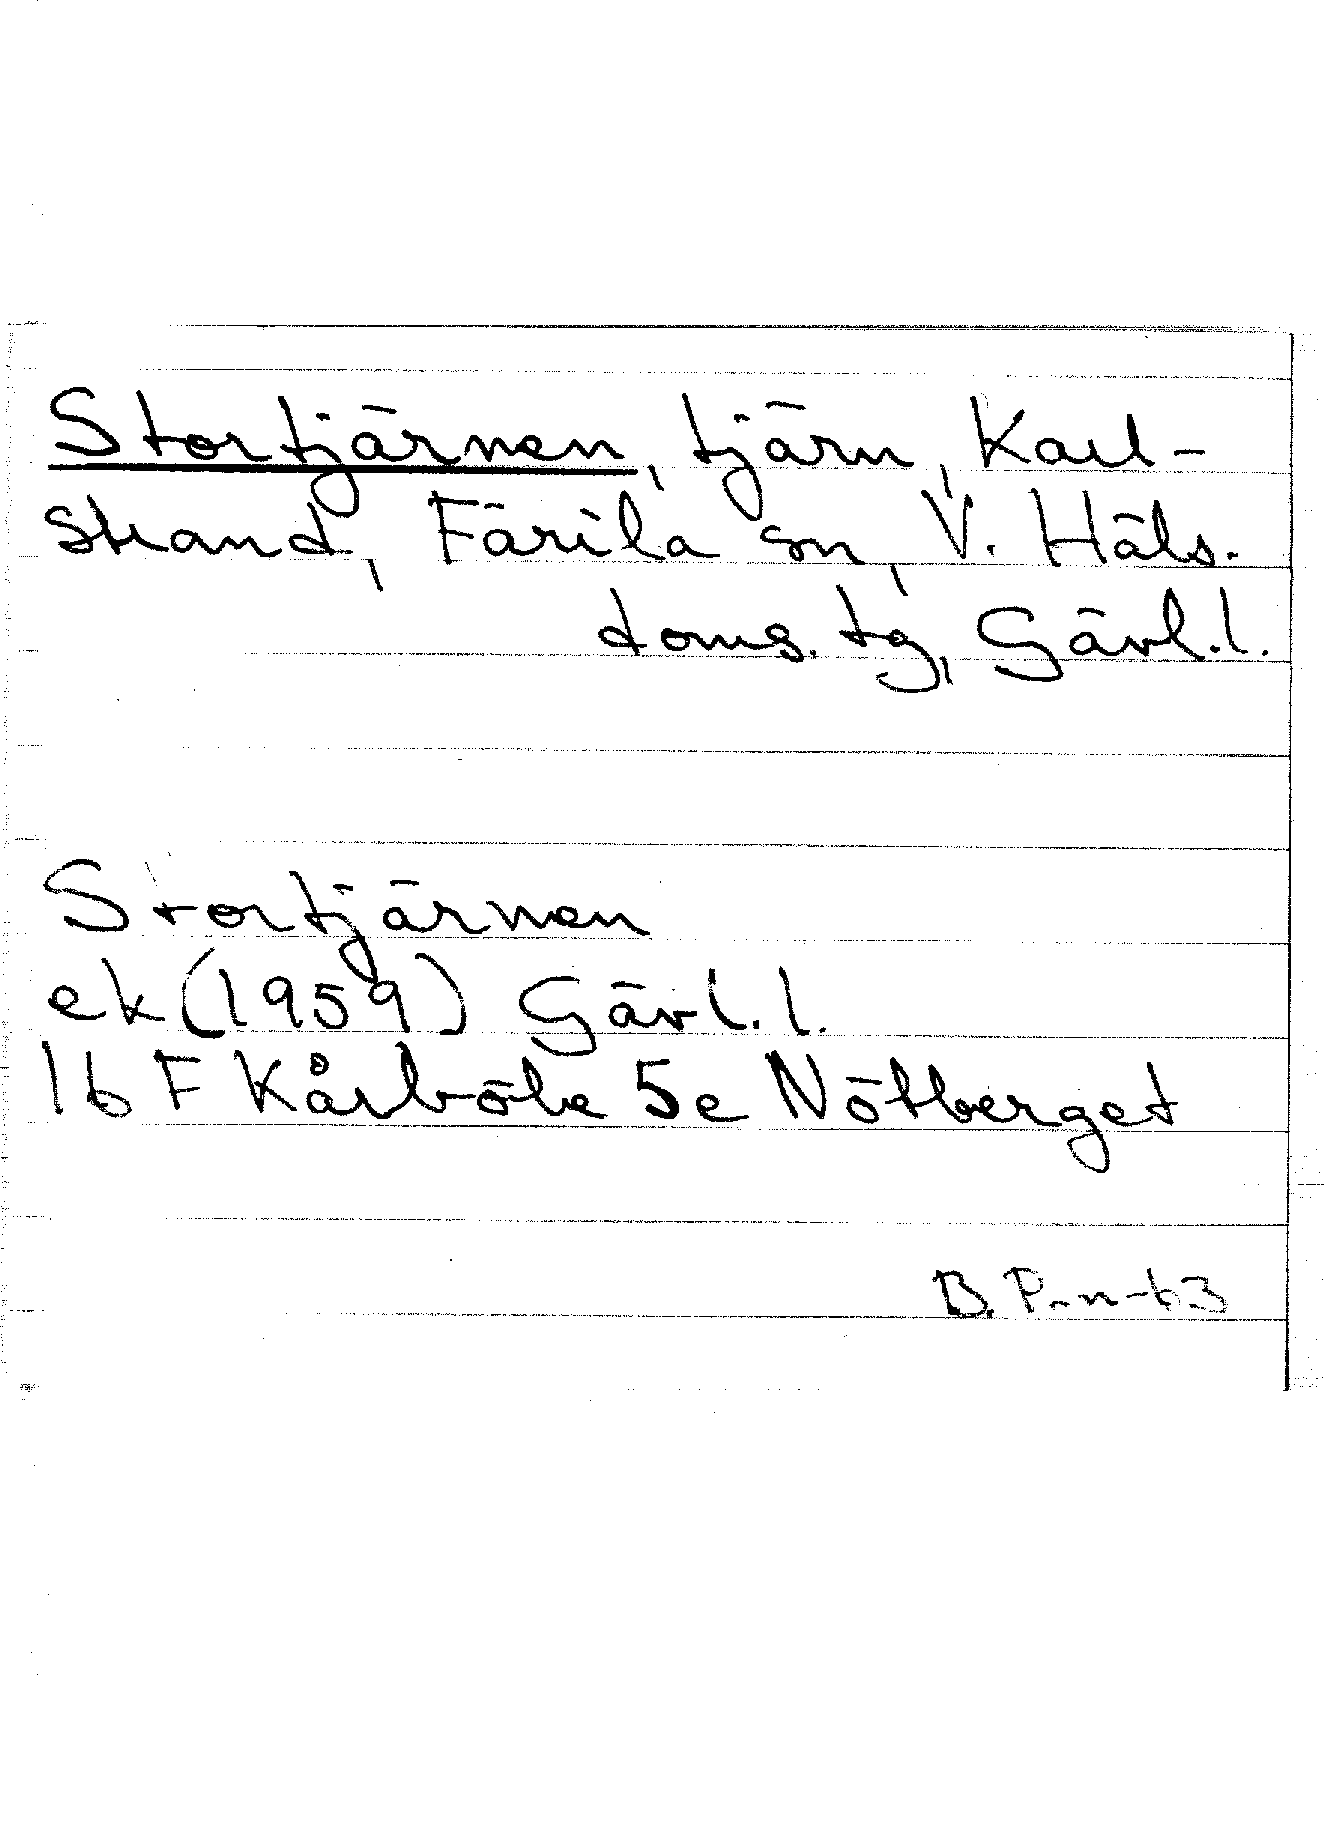 Stortjärnen, tjärn, Karl-
strand, Färila sn, V. Häls.
doms. tg, Gävl.l.
Stortjärnen
ek (1959) Gävl.l.
16 F Kårböle 5e Nötberget
B. P-n-63